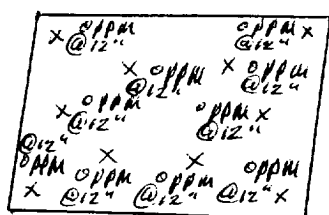 X 0PPM @12" 0PPM @12" X
X 0PPM @12" X 0PPM @12"
X 0PPM @12" 0PPM @12" X
@12" 0PPM X X
X 0PPM @12" 0PPM @12" 0PPM @12" X